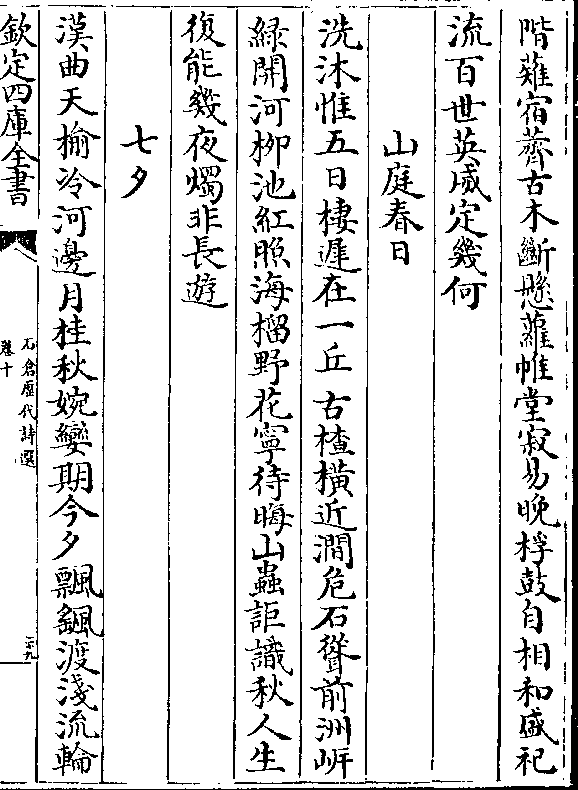 階薙宿薺古木斷懸蘿帷堂寂易晚桴鼓自相和盛祀
流百世英威定幾何
山庭春日
洗沐惟五日棲遲在一丘古楂橫近澗危石聳前洲岍
綠開河柳池紅照海榴野花寧待晦山蟲詎識秋人生
復能幾夜燭非長遊
七夕
漢曲天榆冷河邊月桂秋婉孌期今夕飄颻渡淺流輪
欽定四庫全書
石倉歷代詩選
卷十
二十九